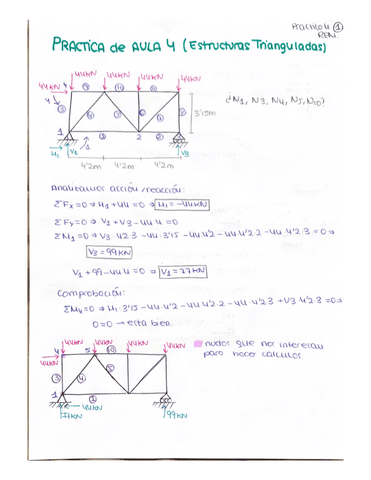 Práctica 4 ①
PRÁCTICA de AULA 4 (Estructuras Trianguladas)
44KN 44KN 44KN 44KN
44KN
¿N1, N3, N4, N5, N10)
3'15m
1 2 3
H1 V1 V3
4'2m 4'2m 4'2m
Analizamos acción/reacción:
ΣFx=0 ⇒ H1+44=0 ⇒ H1=-44KN
ΣFy=0 ⇒ V1+V3-44·4=0
ΣM1=0 ⇒ V3·4'2·3-44·3'15-44·4'2-44·4'2·2-44·4'2·3=0⇒
V3=99KN
V1+99-44·4=0 ⇒ V1=77KN
Comprobación:
ΣM4=0 ⇒ H1·3'15-44·4'2-44·4'2·2-44·4'2·3+V3·4'2·3=0⇒
0=0 → está bien.
44KN 44KN 44KN 44KN
44KN 4 5 ⑩
③ ④ ⑤
1 ①
44KN
77KN
99KN
nudos que nos interesan
para hacer cálculos.